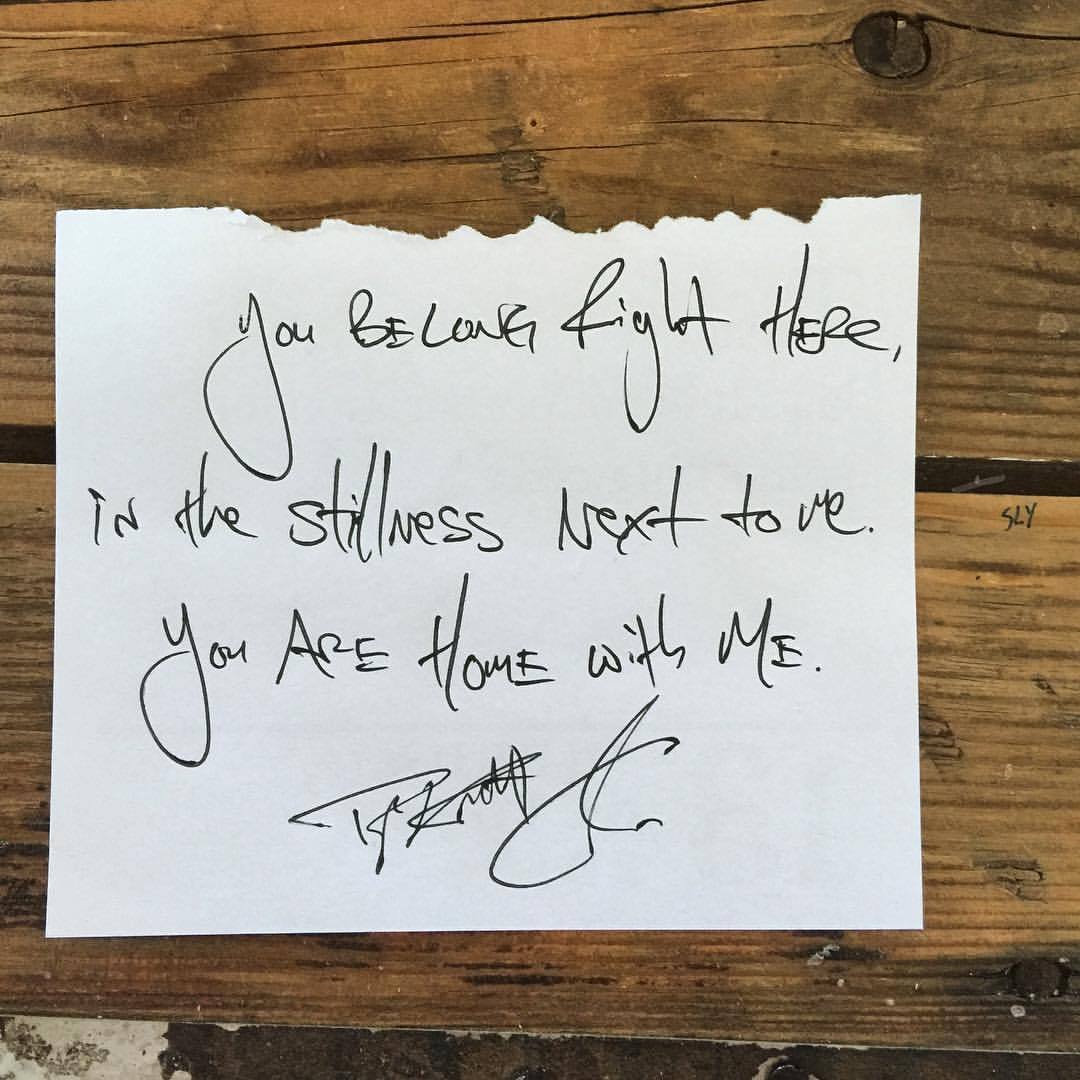 You BELONG Right HERE,
iN the stillNess Next to me.
SLY
You ARE HOME with ME.